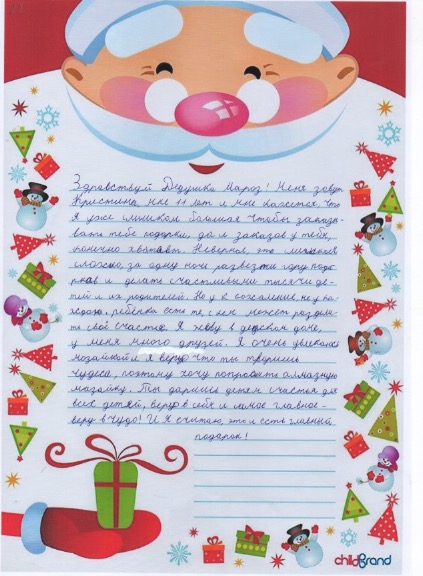 Здравствуй Дедушка Мароз! Меня зовут
Кристина, мне 11 лет и мне кажется, что
я уже слишком большая чтобы заказы-
вать тебе подарки, да и заказов у тебя,
конечно хватает. Наверное, это
сложно, за одну ночь развезти гору пода
рков и делать счастливыми тысячи де-
тей и их родителей. Но у к сожалению, не у ка-
ждого, ребёнка есть те, с кем может разделить
свой счастье. Я живу в детском доме,
у меня много друзей. Я очень увлекаюсь
мозайкой и я верю что ты творишь
чудеса, поэтому хочу попросить алмазную
мозайку. Ты даришь детям счастья для
всех детей, веру в себя и самое главное-
веру в чудо! И Я считаю, это и есть главный
подарок!
childBrand